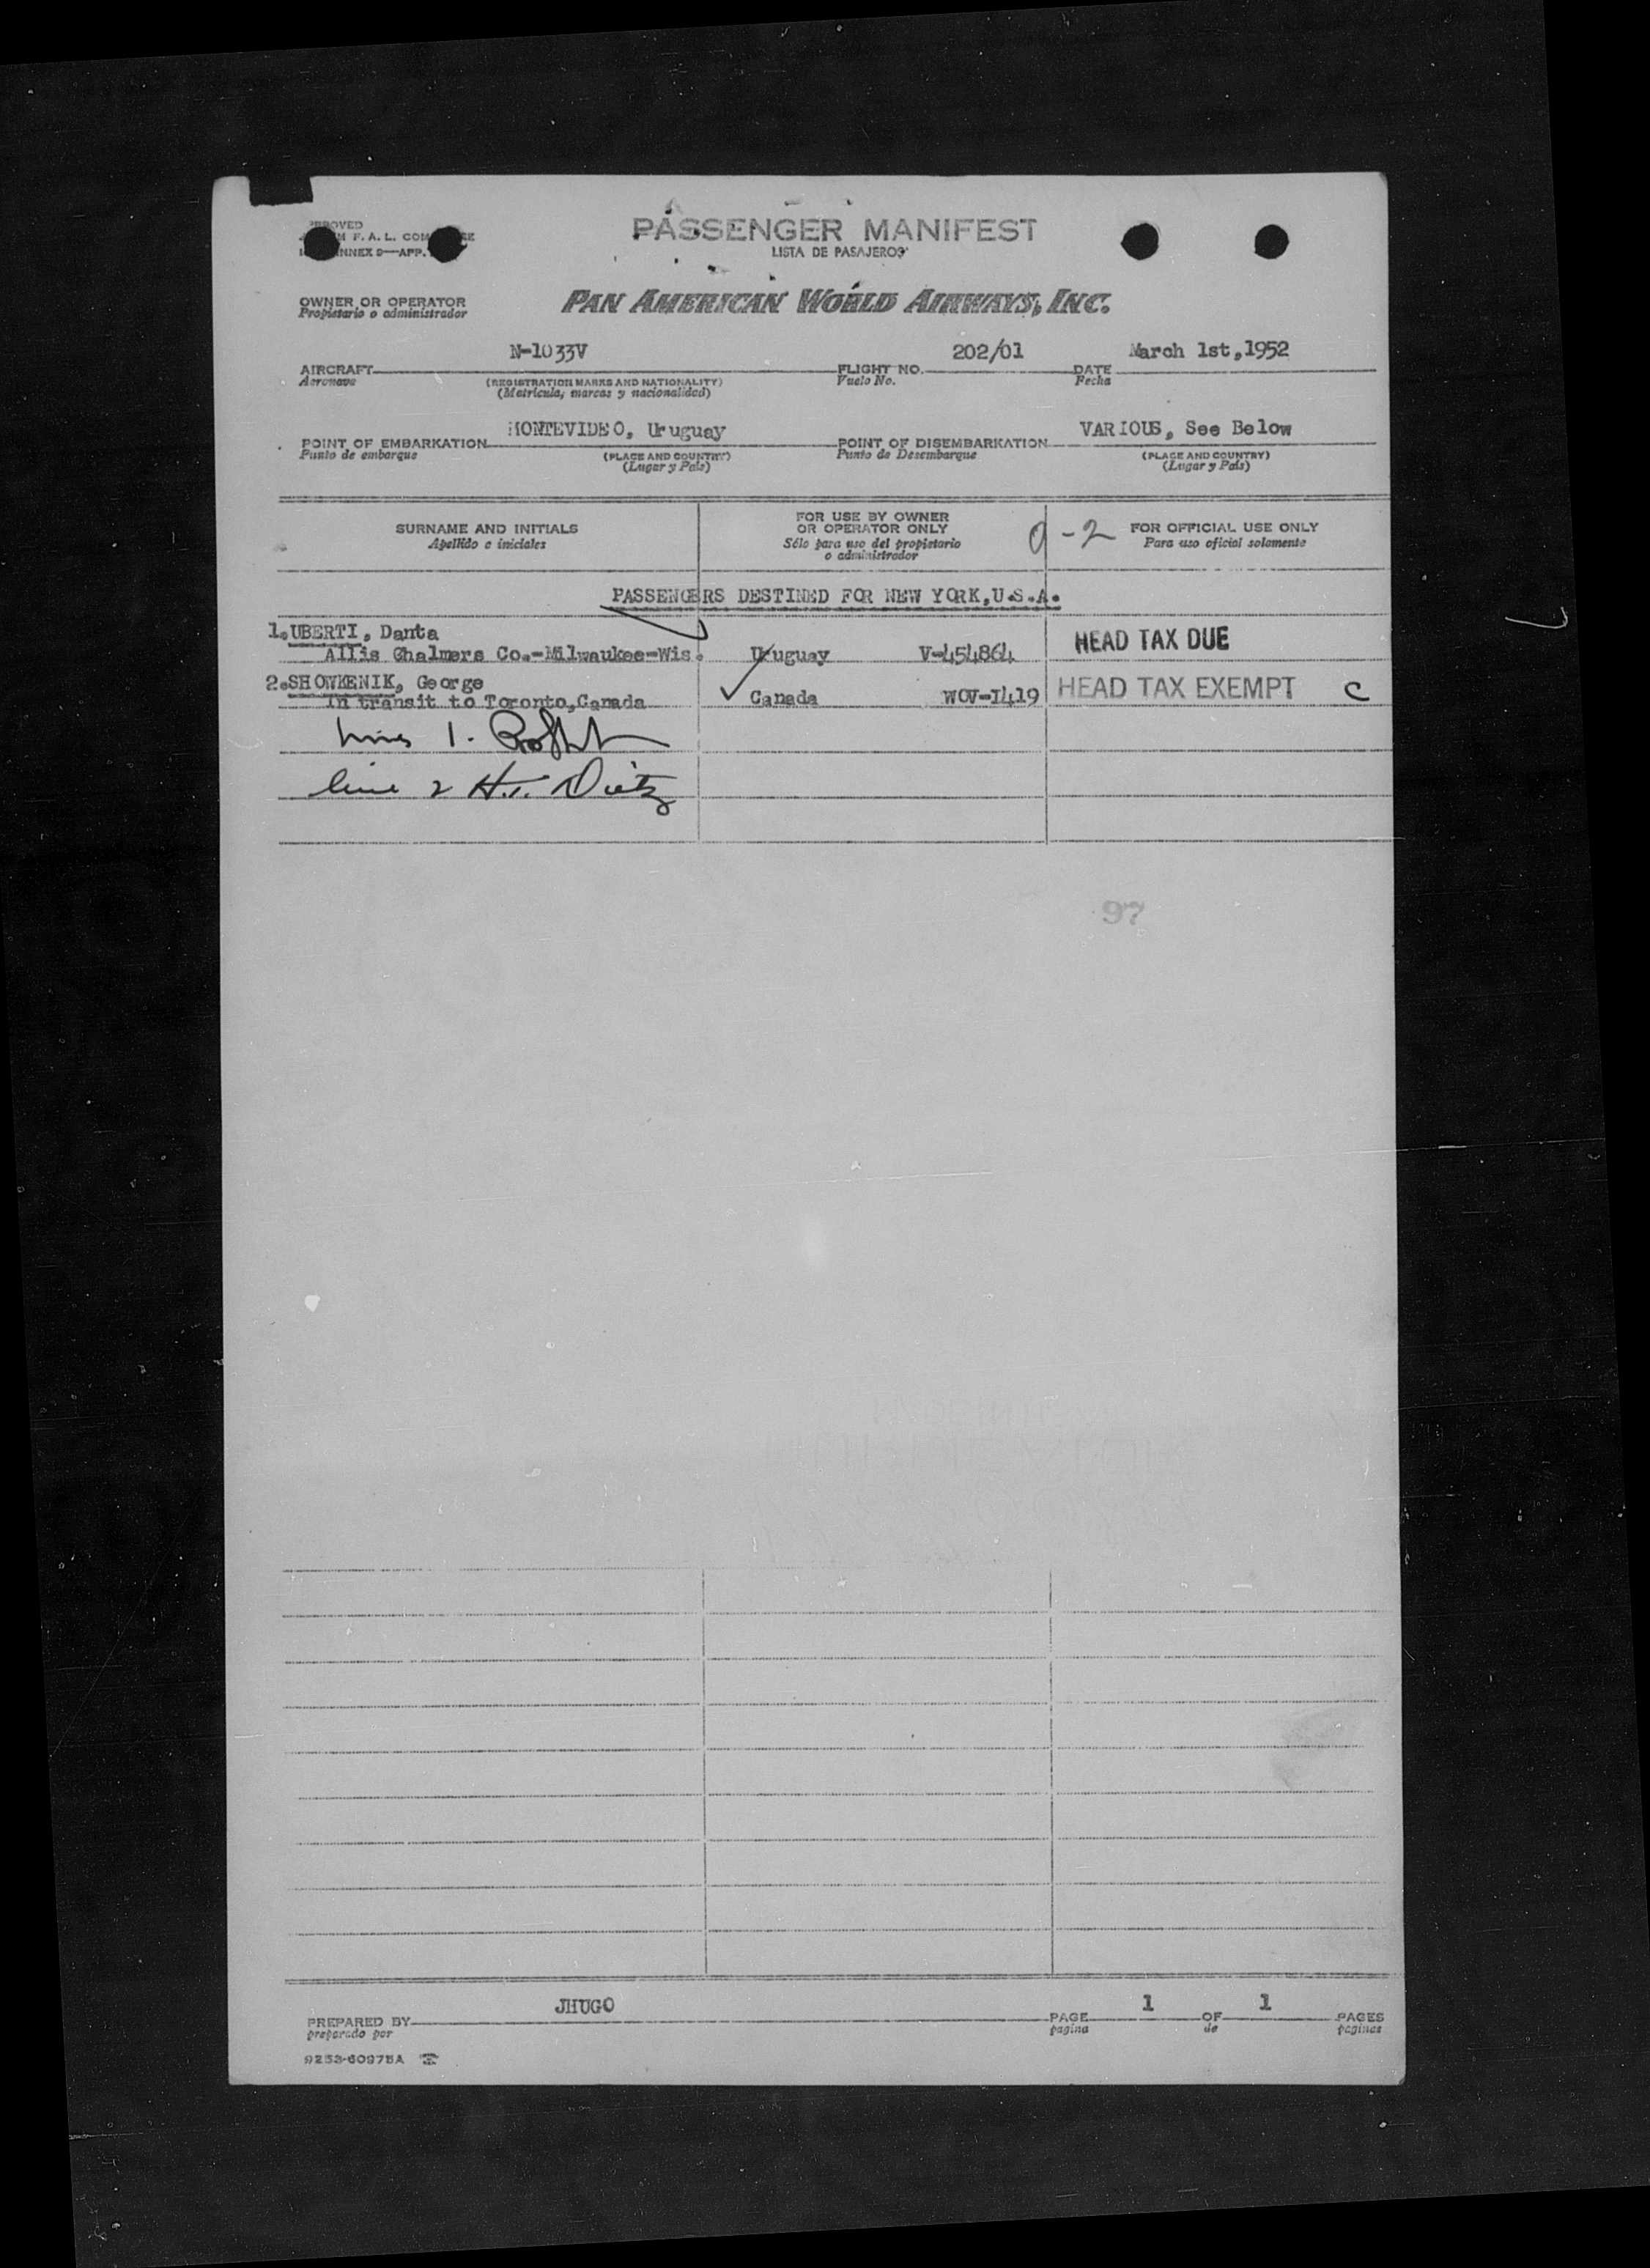 PASSENGER MANIFEST
LISTA DE PASAJEROS
F. A. L. COM
ANNEX 9—APP.
OWNER OR OPERATOR
Propietario o administrador
PAN AMERICAN WORLD AIRWAYS, INC.
N-1033V 202/01 March 1st,1952
AIRCRAFT FLIGHT NO. DATE
Aeronave (REGISTRATION MARKS AND NATIONALITY) Vuelo No. Fecha
(Matrícula, marcas y nacionalidad)
MONTEVIDEO, Uruguay VARIOUS, See Below
POINT OF EMBARKATION POINT OF DISEMBARKATION
Punto de embarque (PLACE AND COUNTRY) Punto de Desembarque (PLACE AND COUNTRY)
(Lugar y País) (Lugar y País)
SURNAME AND INITIALS
Apellido e iniciales
FOR USE BY OWNER
OR OPERATOR ONLY
Sólo para uso del propietario
o administrador
0-2 FOR OFFICIAL USE ONLY
Para uso oficial solamente
PASSENGERS DESTINED FOR NEW YORK,U.S.A.
1.UBERTI, Danta
Allis Chalmers Co.-Milwaukee-Wis. Uruguay V-454864 HEAD TAX DUE
2.SHOWKENIK, George
In transit to Toronto,Canada Canada WOV-1419 HEAD TAX EXEMPT C
1.
line 2 H. Dietz
97
JHUGO 1 1
PREPARED BY PAGE OF PAGES
preparado por página de páginas
9253-60975A